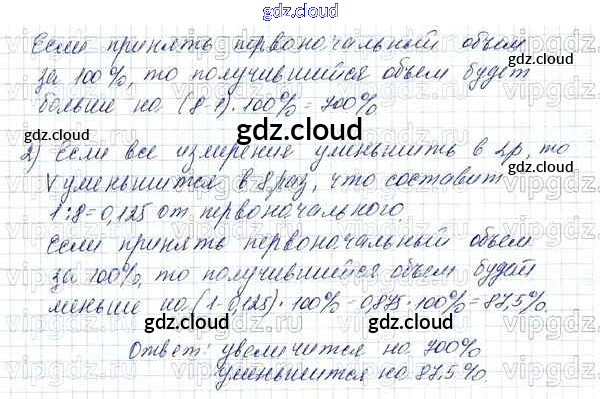 gdz.cloud
Если принять первоначальный объем
за 100%, то получившийся объем будет
больше на (8-1)·100%=700%
gdz.cloud
gdz.cloud
gdz.cloud
2) Если все измерения уменьшить в 2р, то
V уменьшится в 8 раз, что составит
1:8=0,125 от первоначального.
gdz.cloud
Если принять первоначальный объем
за 100%, то получившийся объем будет
gdz.cloud
меньше на (1-0,125)·100%=0,875·100%=87,5%
gdz.cloud
gdz.cloud
Ответ: увеличится на 700%
уменьшится на 87,5%.
gdz.cloud